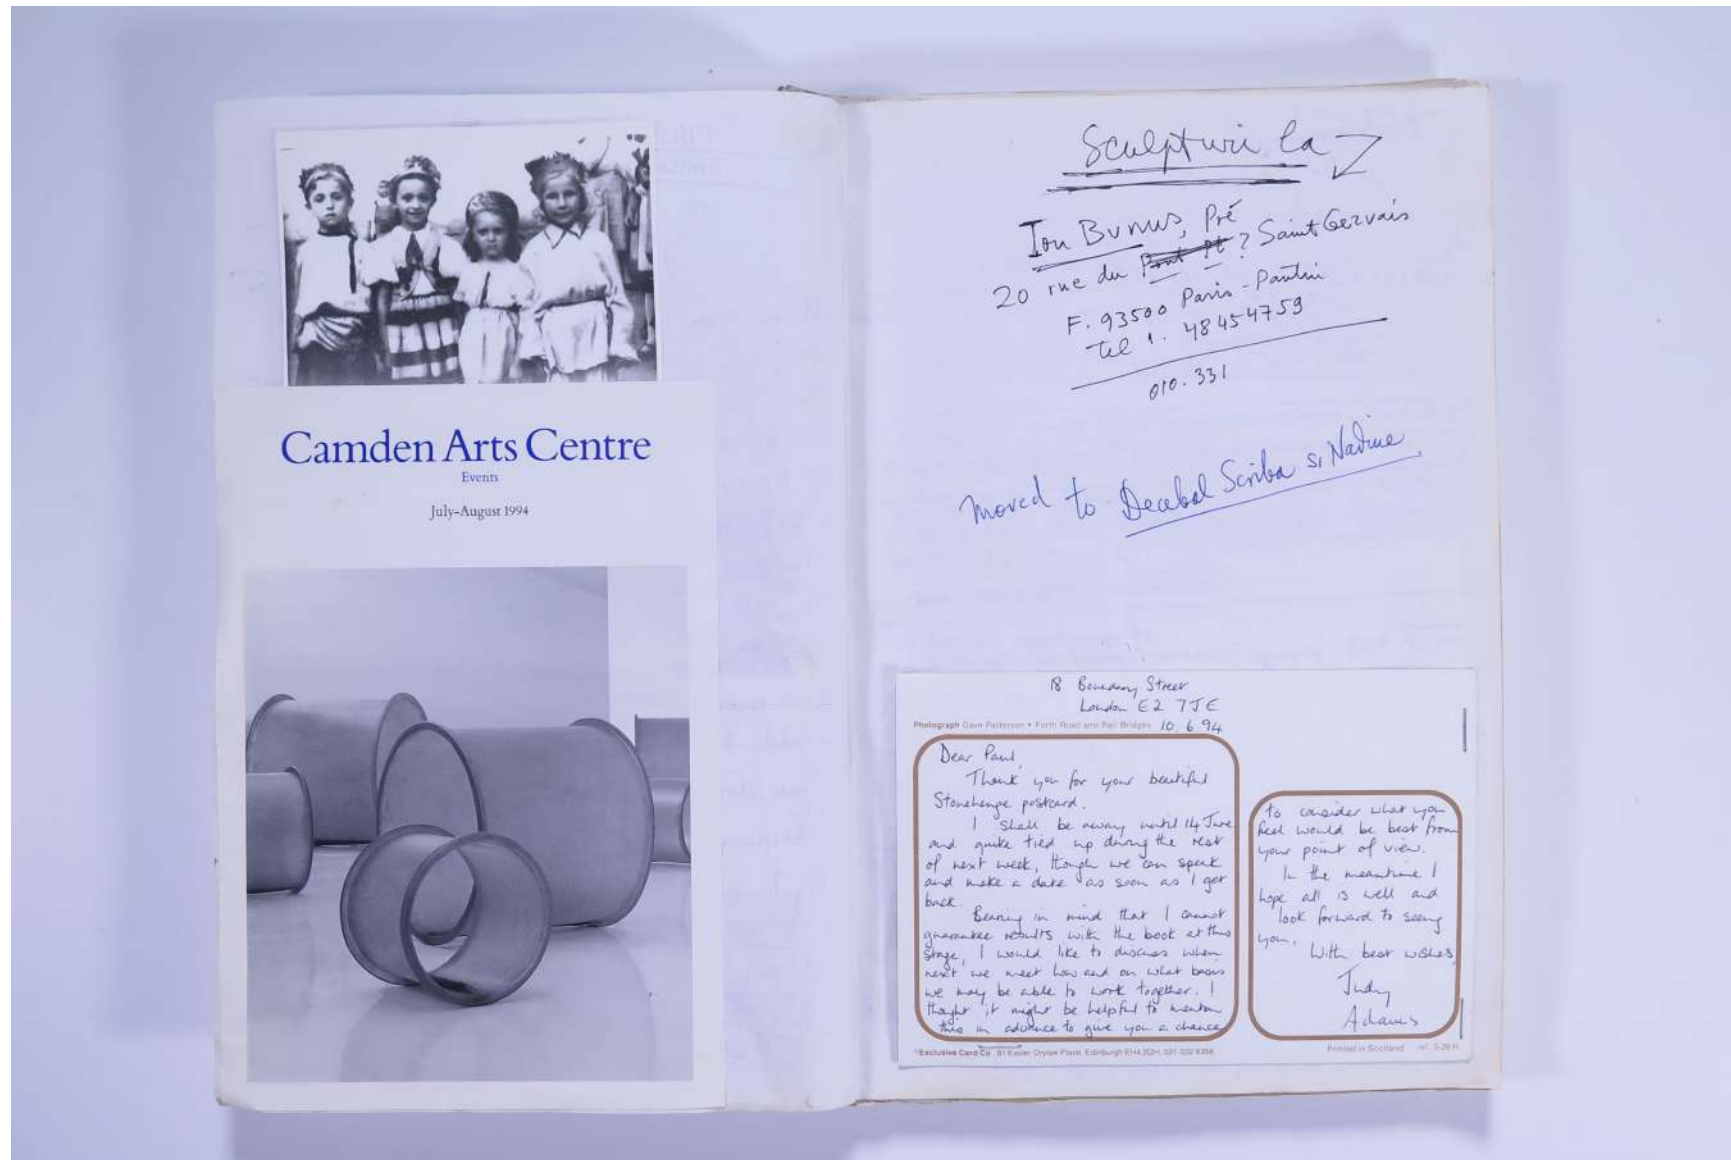 Camden Arts Centre
Events
July–August 1994
Sculpturi la
Ion Bunus, Pré
20 rue du Pont Pt ? Saint Gervais
F. 93500 Paris - Pantin
Tel 1. 48454759
010. 331
Moved to Decebal Scriba si Nadine
18 Boundary Street
London E2 7JE
Photograph Dave Patterson • Forth Road and Rail Bridges 10.6.94
Dear Paul,
Thank you for your beautiful
Stonehenge postcard.
I shall be away until 14 June
and quite tied up during the rest
of next week, though we can speak
and make a date as soon as I get
back.
Bearing in mind that I cannot
guarantee results with the book at this
stage, I would like to discuss when
next we meet how and on what basis
we may be able to work together. I
thought it might be helpful to mention
this in advance to give you a chance
to consider what you
feel would be best from
your point of view.
In the meantime I
hope all is well and
look forward to seeing
you,
With best wishes,
Judy
Adams
Exclusive Card Co. 91 Easter Drylaw Place, Edinburgh EH4 2QH, 031-332
Printed in Scotland ref.